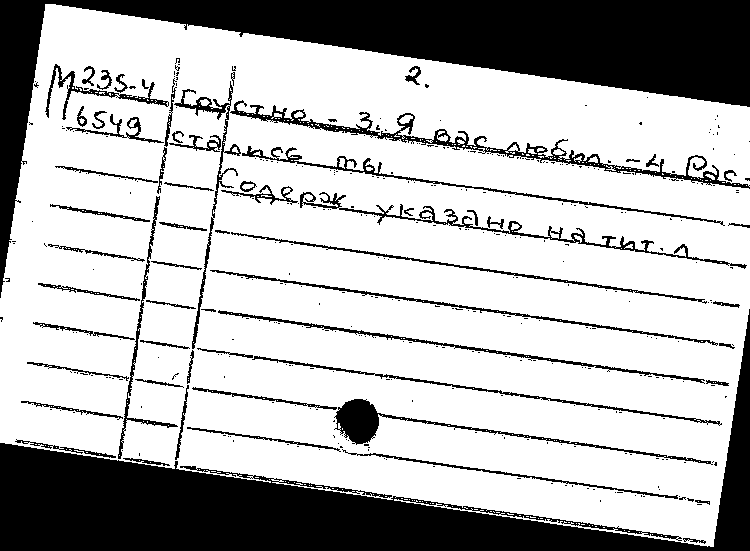 2.
М 235-4 Грустно. - 3. Я вас любил. - 4. Рас-
6549 стались мы.
Содерж. указано на тит. л